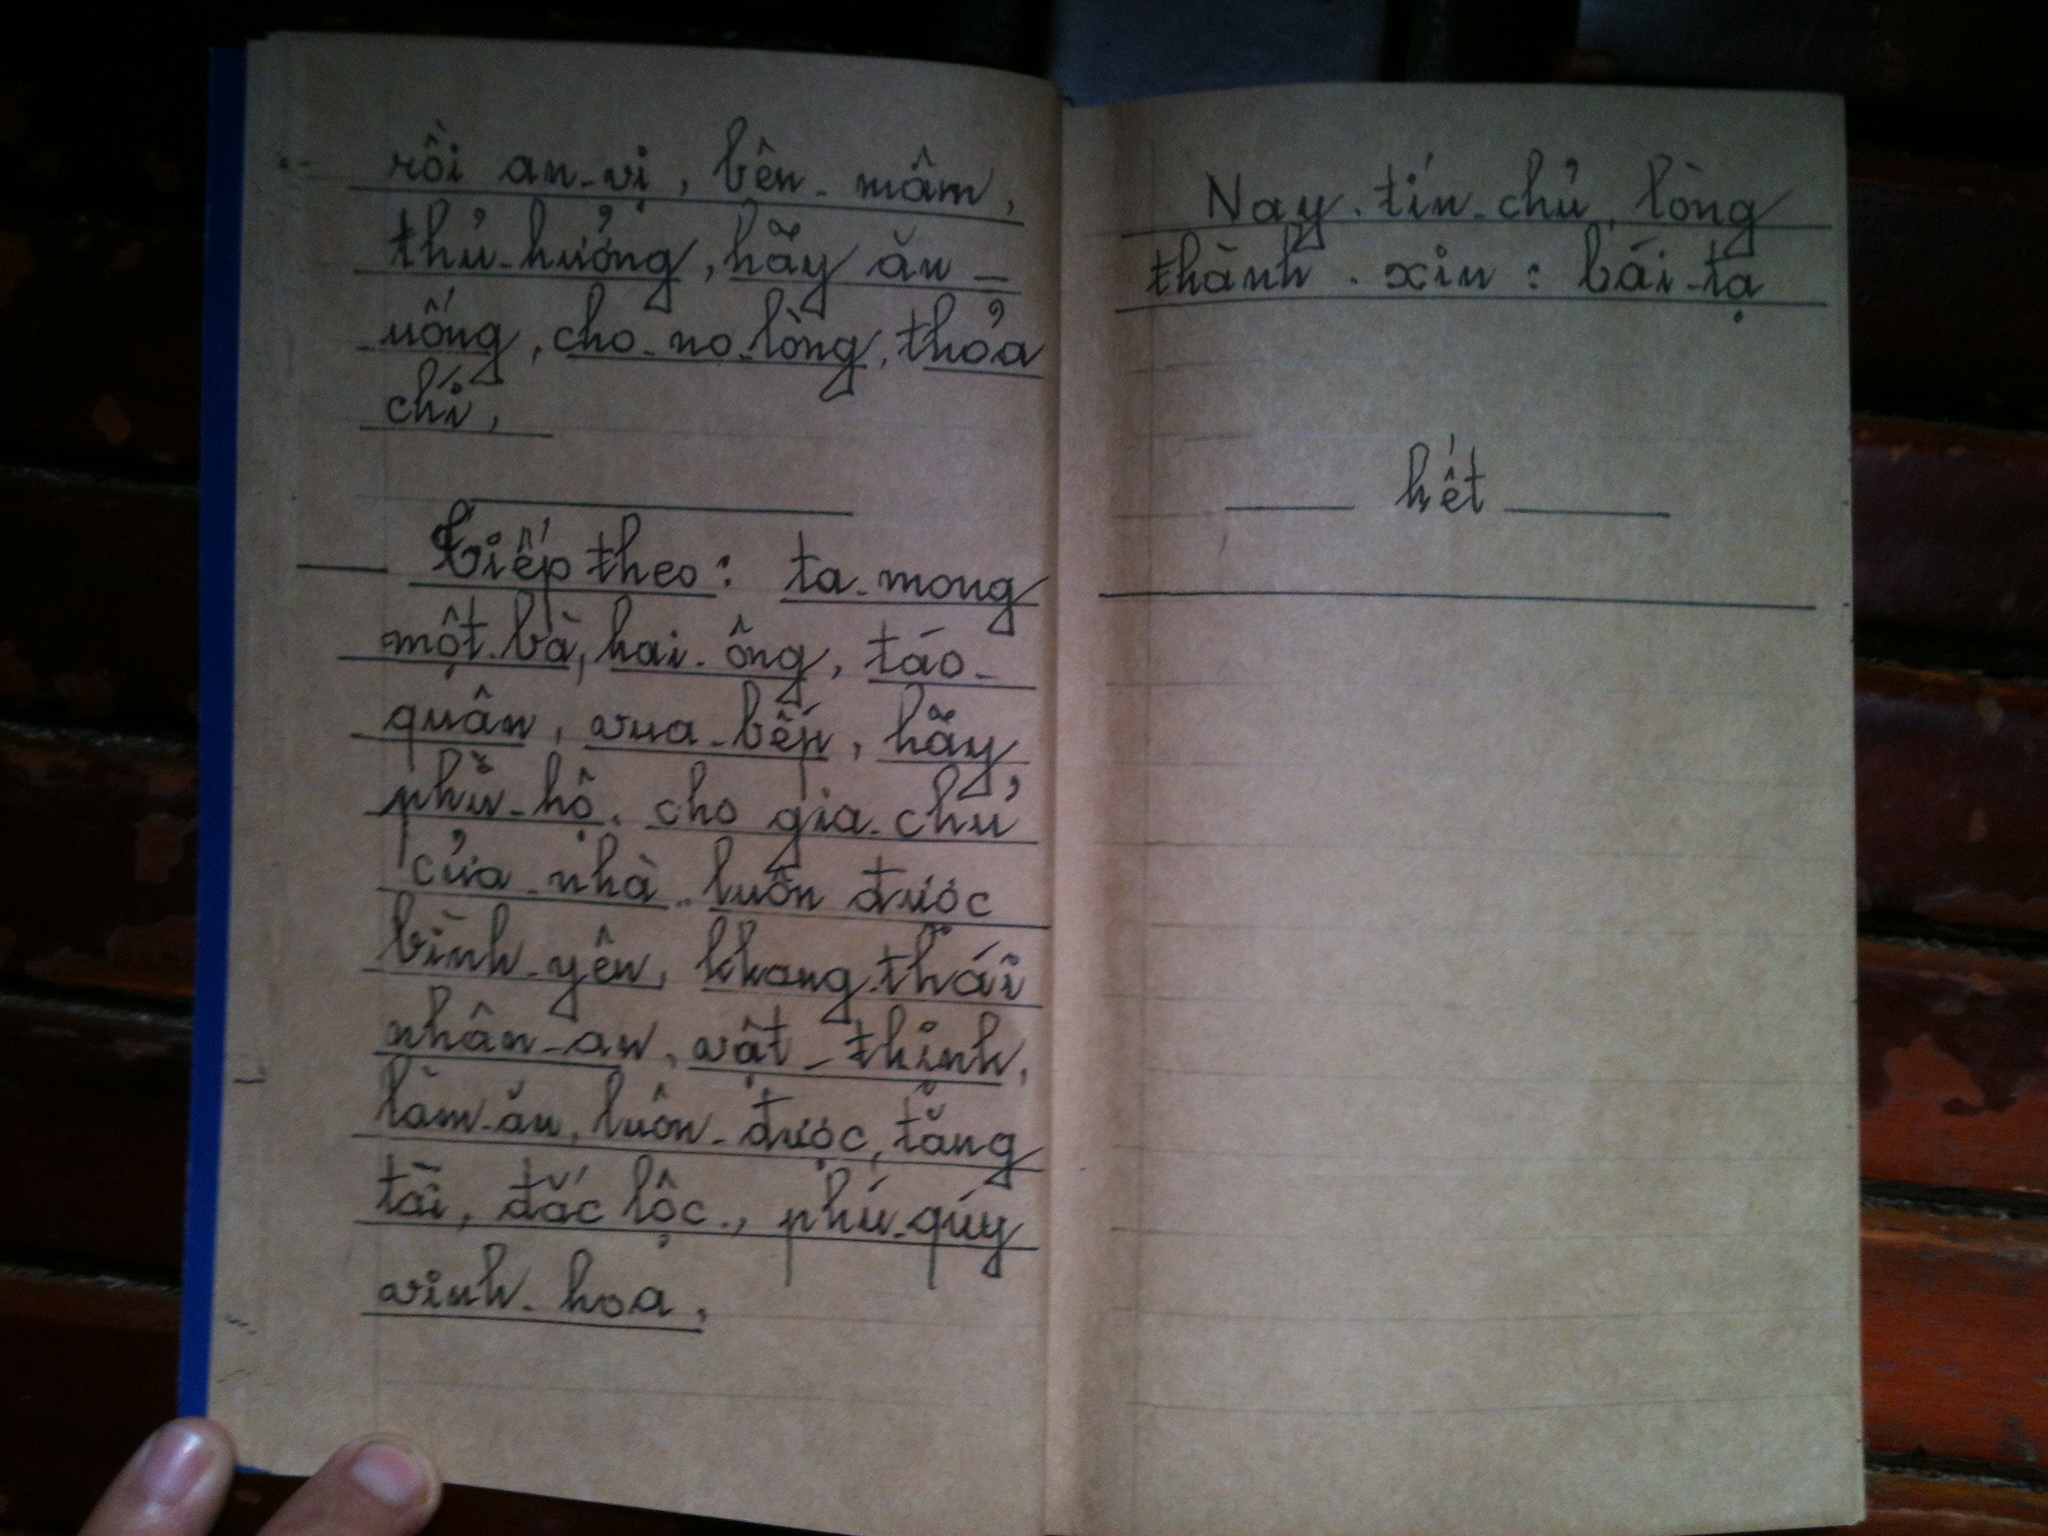 rồi an-vị, bên-mâm,
thủ-hưởng, hãy ăn-
uống, cho-no-lòng, thỏa
chí,
Tiếp theo: ta-mong
một-bà, hai-ông, táo-
quân, vua-bếp, hãy
phù-hộ. cho gia-chủ
cửa-nhà-luôn được
bình-yên, khang-thái
nhân-an, vật-thịnh,
làm-ăn, luôn-được, tăng
tài, đắc lộc, phú-quý
vinh-hoa.
Nay-tín-chủ, lòng
thành-xin: bái-tạ
hết